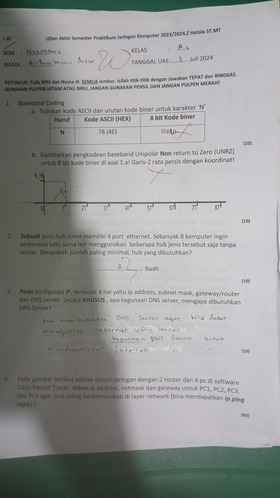 Ujian Akhir Semester Praktikum Jaringan Komputer 2023/2024,2 Hatala ST.MT
# A)
NIM :
KELAS : A
NAMA :
TANGGAL UAS : 3 Juli 2024
PETUNJUK: Tulis NIM dan Nama di SEMUA lembar. Isilah titik-titik dengan Jawaban TEPAT dan RINGKAS.
GUNAKAN PULPEN HITAM ATAU BIRU, JANGAN GUNAKAN PENSIL DAN JANGAN PULPEN MERAH!
1. Baseband Coding
a. Tuliskan kode ASCII dan urutan kode biner untuk karakter 'N'
Huruf Kode ASCII (HEX) 8 bit Kode biner
N 78 (4E)
(10)
b. Gambarkan pengkodean baseband Unipolar Non return to Zero (UNRZ)
untuk 8 bit kode biner di soal 1.a! Garis-2 rata persis dengan koordinat!
0 T 2T 3T 4T 5T 6T 7T 8T
(10)
2. Sebuah jenis hub cuma memiliki 4 port ethernet. Sebanyak 8 komputer ingin
terkoneksi satu sama lain menggunakan beberapa hub jenis tersebut saja tanpa
router. Berapakah jumlah paling minimal, hub yang dibutuhkan?
2 buah
(10)
3. Pada konfigurasi IP, terdapat 4 hal yaitu ip address, subnet mask, gateway/router
dan DNS server. Secara KHUSUS, apa kegunaan DNS server, mengapa dibutuhkan
DNS Server?
DNS Server agar bisa dapat
internet
DNS Server untuk
internet
(10)
4. Pada gambar berikut adalah desain jaringan dengan 2 router dan 4 pc di software
Cisco Packet Tracer. Isikan ip address, netmask dan gateway untuk PC1, PC2, PC3,
dan PC4 agar bisa saling berkomunikasi di layer network (bisa mendapatkan ip ping
reply) !